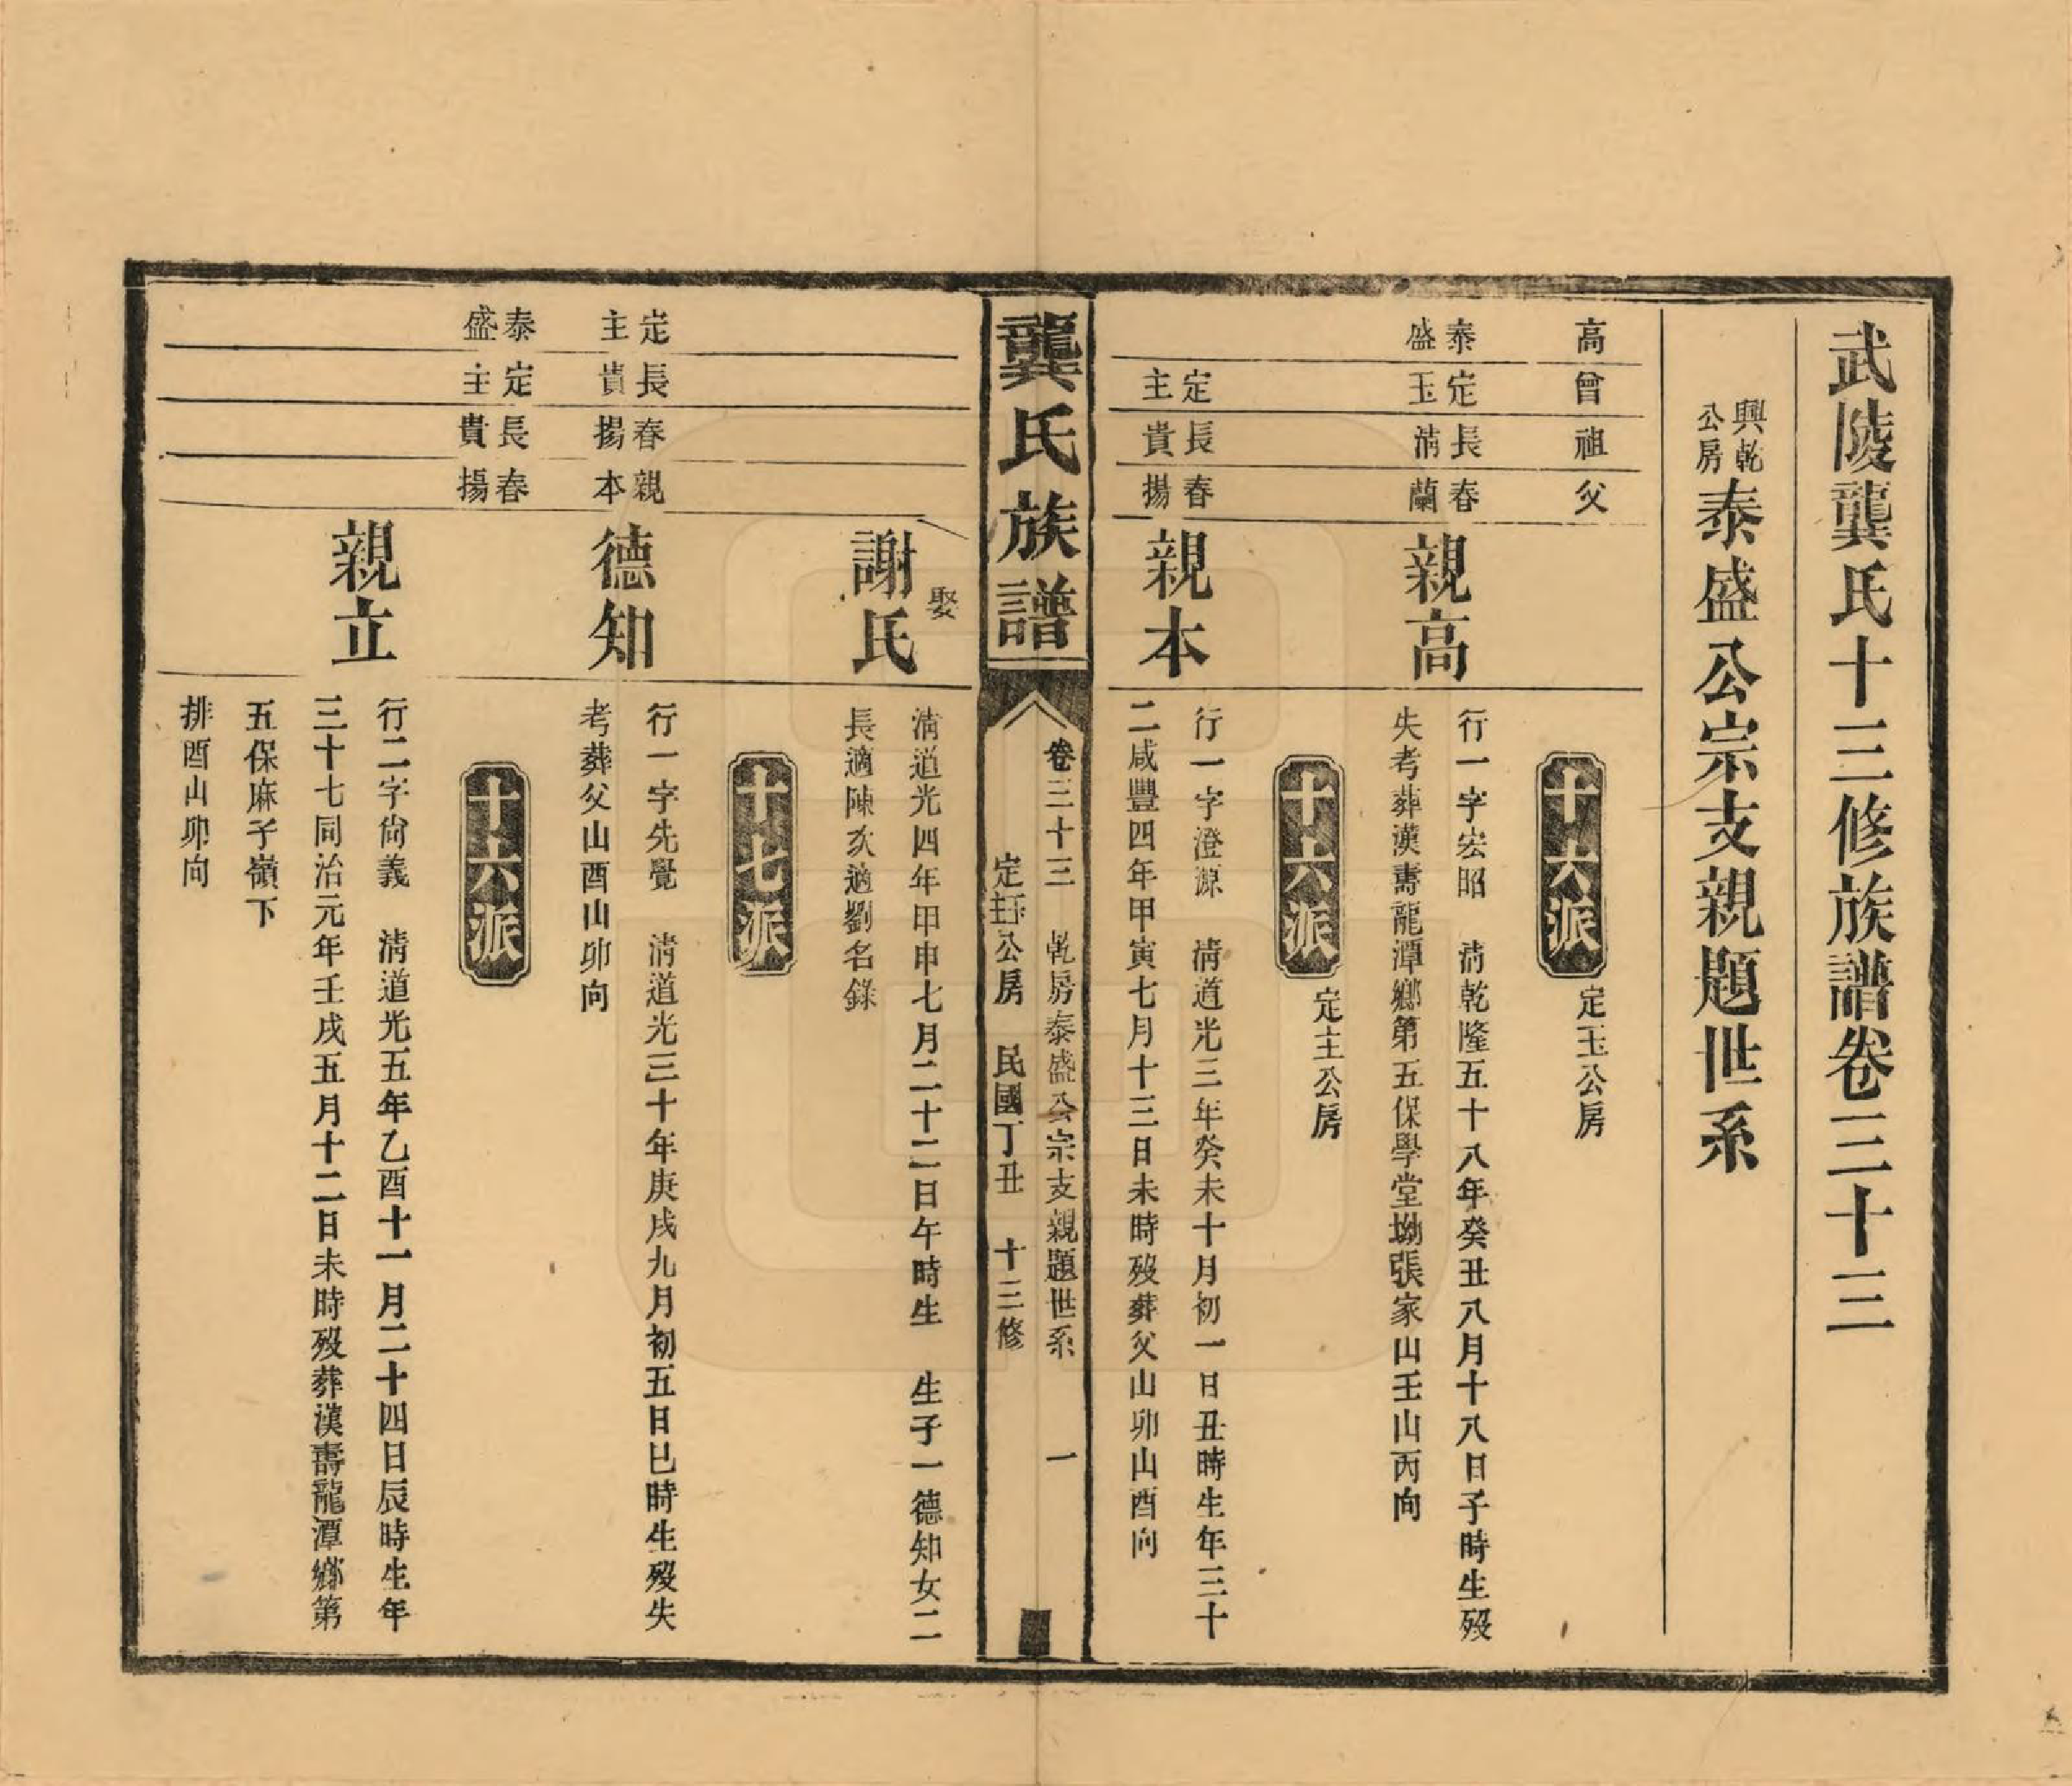 武陵龔氏十三修族譜卷三十三
興乾公房泰盛公宗支親題世系
高
曾
祖
父
十六派 定玉公房
泰盛
定玉
長清
春蘭
親高
行一字宏昭 清乾隆五十八年癸丑八月十八日子時生歿
失考葬漢壽龍潭鄉第五保學堂坳張家山壬山丙向
十六派 定主公房
定主
長貴
春揚
親本
行一字澄源 清道光三年癸未十月初一日丑時生年三十
二咸豐四年甲寅七月十三日未時歿葬父山卯山酉向
龔氏族譜
卷三十三 乾房泰盛公宗支親題世系 一
定玉主公房 民國丁丑 十三修
娶
謝氏
清道光四年甲申七月二十二日午時生 生子一德知女二
長適陳次適劉名錄
十七派
定主
長貴
春揚
親本
德知
行一字先覺 清道光三十年庚戌九月初五日巳時生歿失
考葬父山酉山卯向
十六派
泰盛
定主
長貴
春揚
親立
行二字尙義 清道光五年乙酉十一月二十四日辰時生年
三十七同治元年壬戌五月十二日未時歿葬漢壽龍潭鄉第
五保麻子嶺下
排酉山卯向